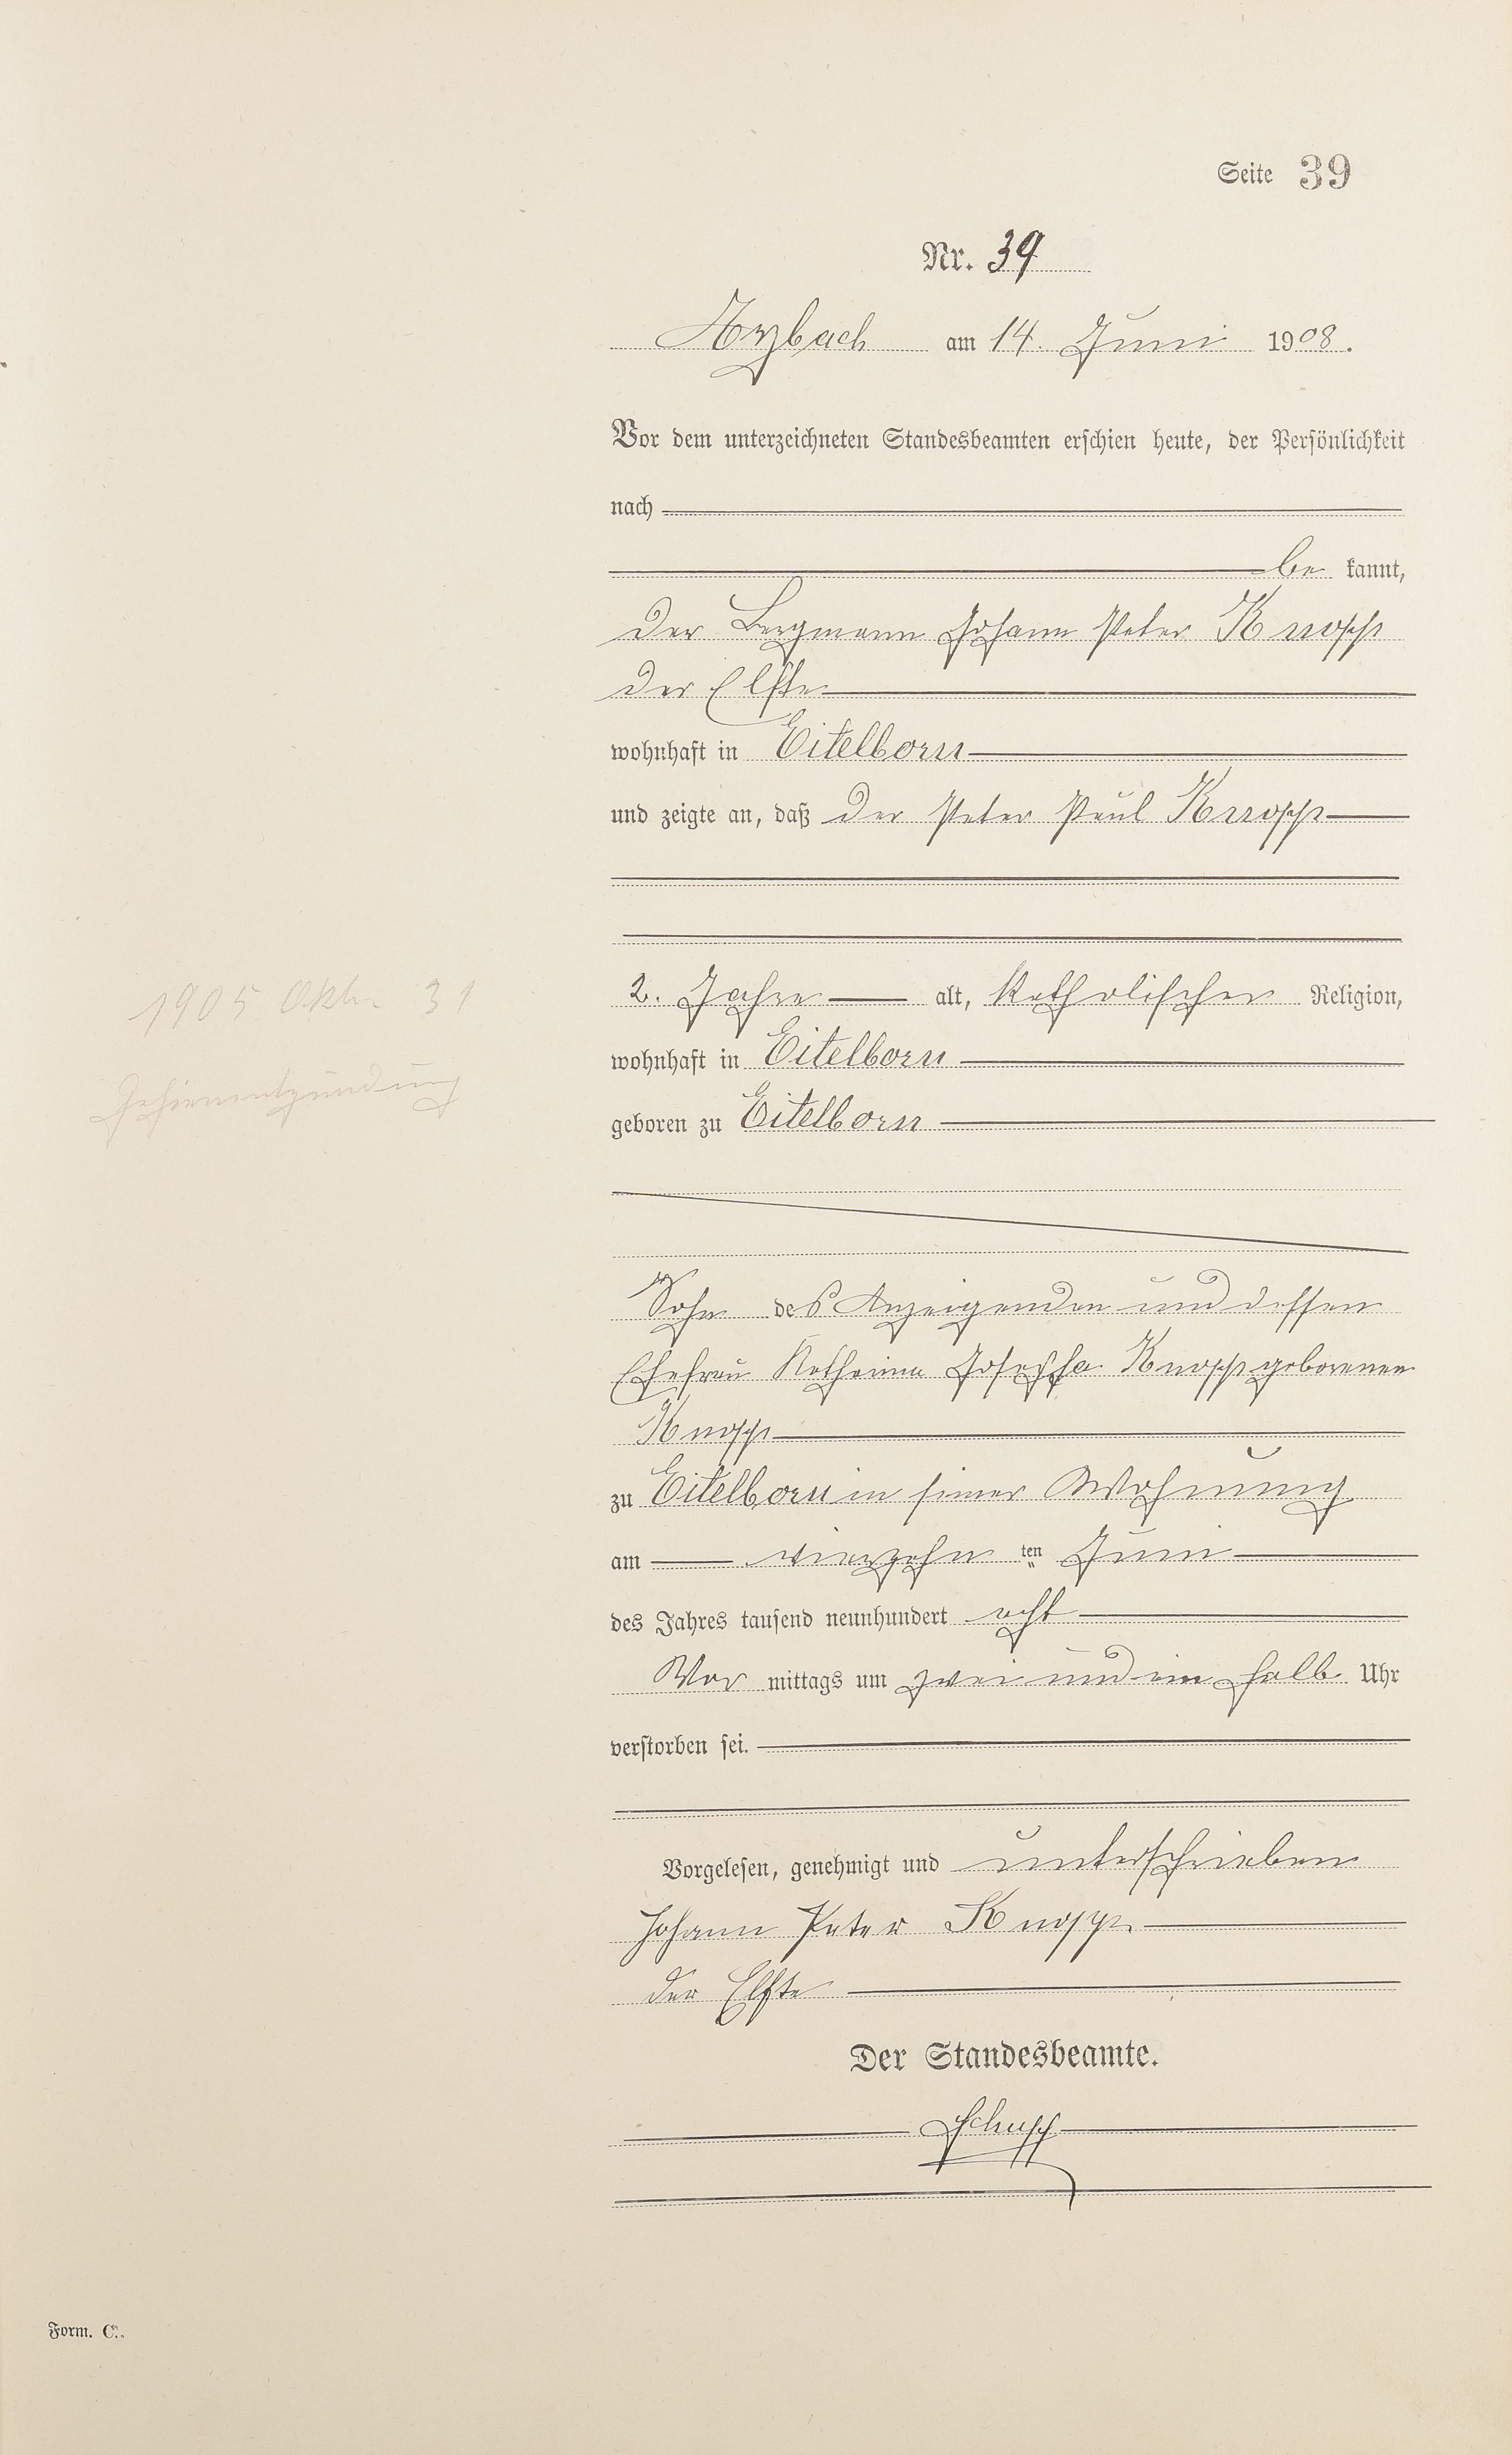 Seite 39
Nr. 39
Arzbach am 14. Juni 1908.
Vor dem unterzeichneten Standesbeamten erschien heute, der Persönlichkeit
nach
be kannt,
der Bergmann Johann Peter Knopp
der Elfte
wohnhaft in Eitelborn
und zeigte an, daß der Peter Paul Knopp
1905 Oktbr 31
2. Jahre alt, katholischer Religion,
wohnhaft in Eitelborn
Gehirnentzündung
geboren zu Eitelborn
Sohn des Anzeigenden und dessen
Ehefrau Katharina Josepha Knopp geborenen
Knopp
zu Eitelborn in seiner Wohnung
am vierzehn ten Juni
des Jahres tausend neunhundert acht
Vor mittags um zwei und ein halb Uhr
verstorben sei.
Vorgelesen, genehmigt und unterschrieben
Johann Peter Knopp
der Elfte
Der Standesbeamte.
Form. C.